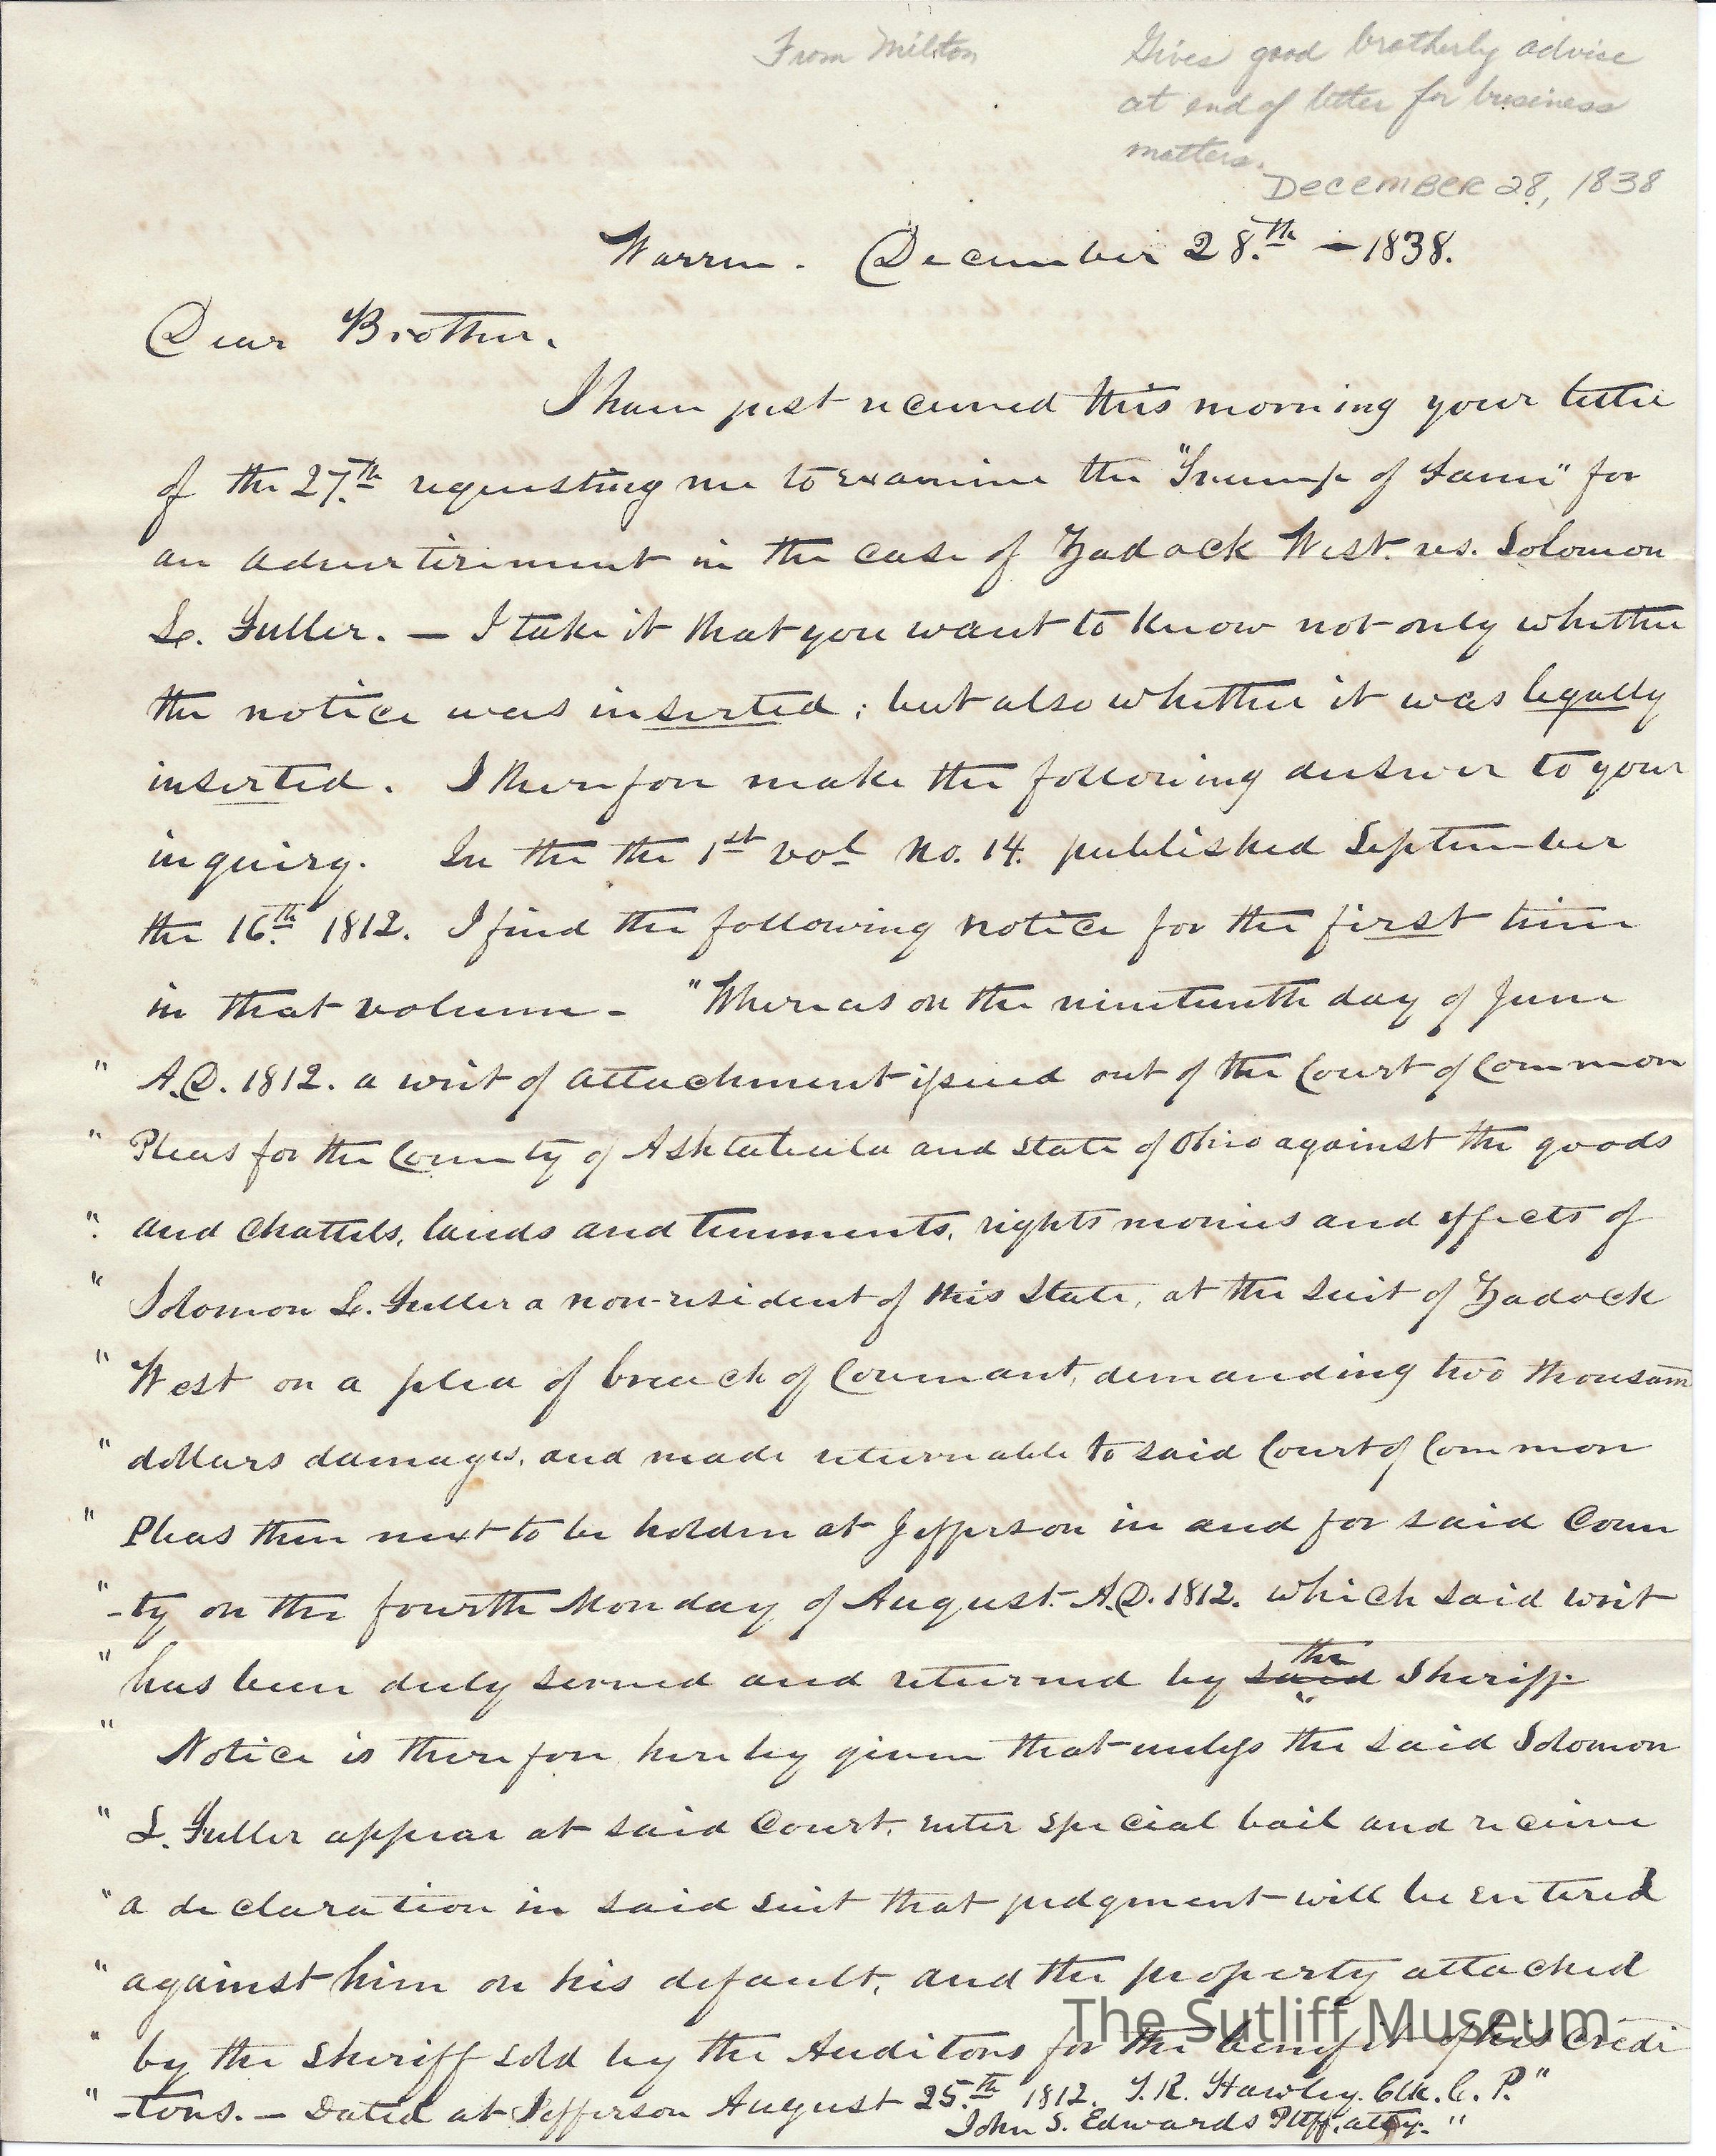 From Milton
Gives good brotherly advise
at end of letter for business
matters.
DECEMBER 28, 1838
Warren. December 28.th — 1838.
Dear Brother.
I have just received this morning your letter
of the 27.th requesting me to examine the "Trump of Fame" for
an advertisement in the case of Zadock West. vs. Solomon
L. Fuller. — I take it that you want to know not only whether
the notice was inserted; but also whether it was legally
inserted. I therefore make the following answer to your
inquiry. In the the 1st vol no. 14. published September
the 16.th 1812. I find the following notice for the first time
in that volume - "Whereas on the nineteenth day of June
" A.D. 1812. a writ of attachment issued out of the Court of Common
" Pleas for the County of Ashtabula and State of Ohio against the goods
" and chattels, lands and tenements, rights monies and effects of
" Solomon L. Fuller a non-resident of this State, at the suit of Zadock
" West on a plea of breach of Covenant, demanding two thousand
" dollars damages, and made returnable to said Court of Common
" Pleas then next to be holden at Jefferson in and for said Coun
" -ty on the fourth Monday of August A.D. 1812. which said writ
" has been duly served and returned by said the Sheriff
" Notice is therefore hereby given that unless the said Solomon
" L. Fuller appear at said Court, enter special bail and receive
" a declaration in said suit that judgment will be entered
" against him on his default, and the property attached
" by the sheriff sold by the Auditors for the benefit of his credi
" -tors. — Dated at Jefferson August 25.th 1812. T. R. Hawley. Clk. C. P."
John S. Edwards Pltff. atty. "
The Sutliff Museum